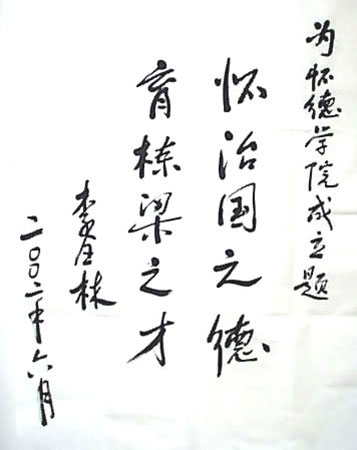 为怀德学院成立题
怀治国之德
育栋梁之才
李全林
二〇〇二年六月